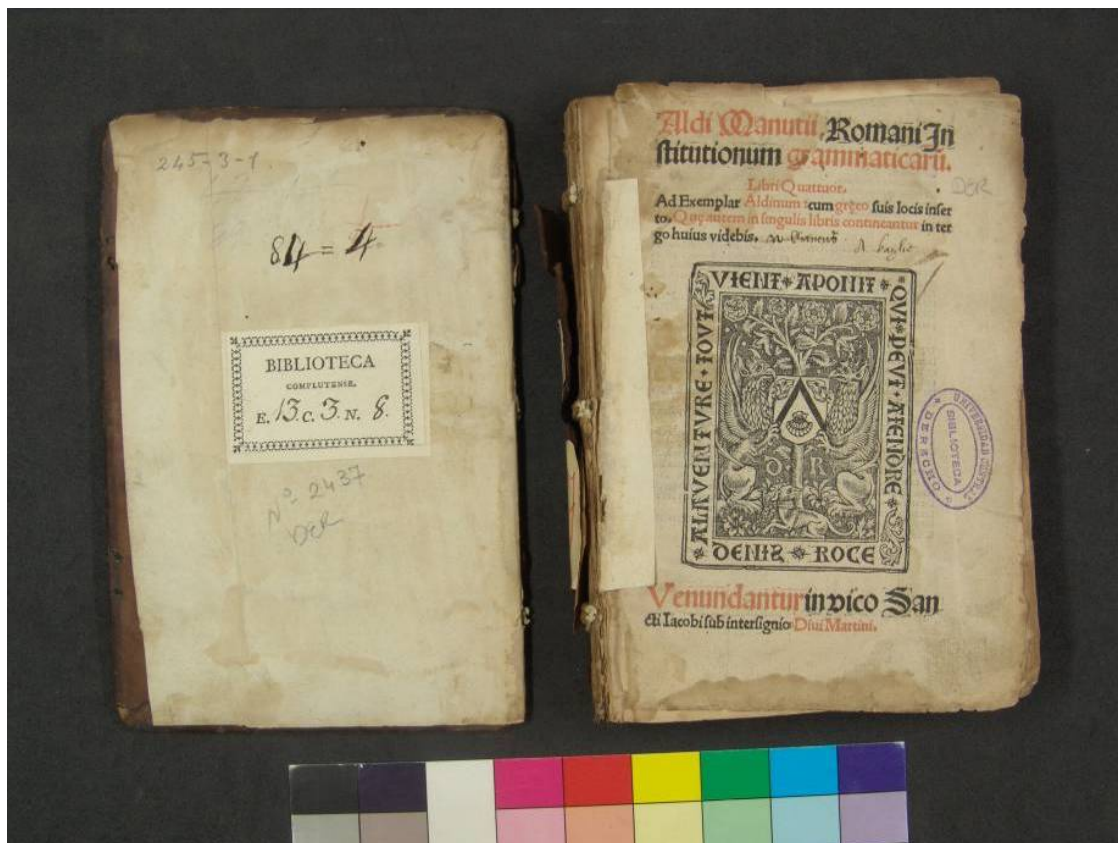 245-3-1
84 = 4
BIBLIOTECA
COMPLUTENSE.
E. 13. C. 3. N. 8.
Nº 2437
DER
Aldi Manutii, Romani In
stitutionum grammaticarũ.
Libri Quattuor.
Ad Exemplar Aldinum: cum gręco suis locis inser
to. Quę autem in singulis libris contineantur in ter
go huius videbis.
DER
ALAVENTVRE * TOVT * VIENT * APOINT * QVI * PEVT * ATENDRE *
D R
DENIS * ROCE
UNIVERSIDAD CENTRAL
BIBLIOTECA
* DERECHO *
Venundantur in vico San
cti Iacobi sub intersignio Diui Martini.